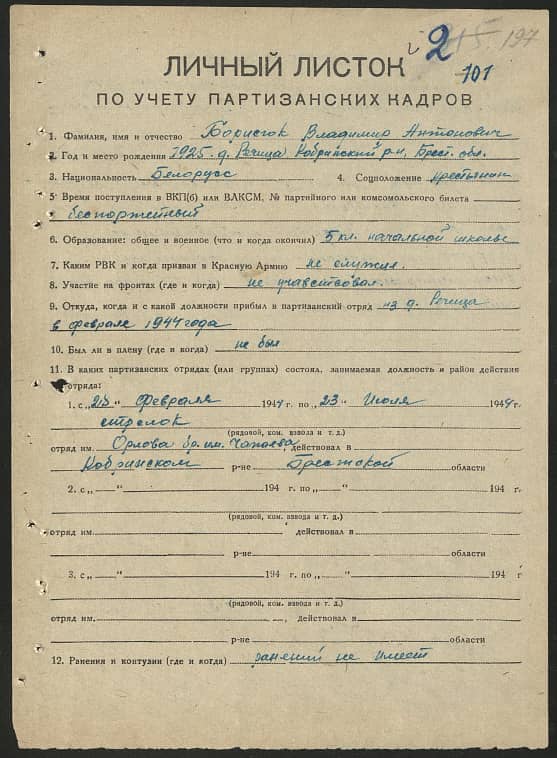 2
197
101
ЛИЧНЫЙ ЛИСТОК
ПО УЧЕТУ ПАРТИЗАНСКИХ КАДРОВ
1. Фамилия, имя и отчество Борисюк Владимир Антонович
2. Год и место рождения 1925 д. Речица Кобринский р-н, Брест. обл.
3. Национальность Белорусс 4. Соцположение крестьянин
5. Время поступления в ВКП(б) или ВЛКСМ, № партийного или комсомольского билета
беспартейный
6. Образование: общее и военное (что и когда окончил) 5 кл. начальной школы
7. Каким РВК и когда призван в Красную Армию не служил.
8. Участие на фронтах (где и когда) не учавствовал.
9. Откуда, когда и с какой должности прибыл в партизанский отряд из д. Речица
в феврале 1944 года
10. Был ли в плену (где и когда) не был
11. В каких партизанских отрядах (или группах) состоял, занимаемая должность и район действия
отряда:
1. с „ “ Февраля 1944 г. по „23“ Июля 1944 г.
стрелок
(рядовой, ком. взвода и т. д.)
отряд им. Орлова бр. им. Чапаева, действовал в
Кобринском р-не Брестской области
2. с „ “ 194 г. по „ “ 194 г.
(рядовой, ком. взвода и т. д.)
отряд им. действовал в
р-не области
3. с „ “ 194 г. по „ “ 194 г
(рядовой, ком. взвода и т. д.)
отряд им. , действовал в
р-не области
12. Ранения и контузии (где и когда) ранений не имеет